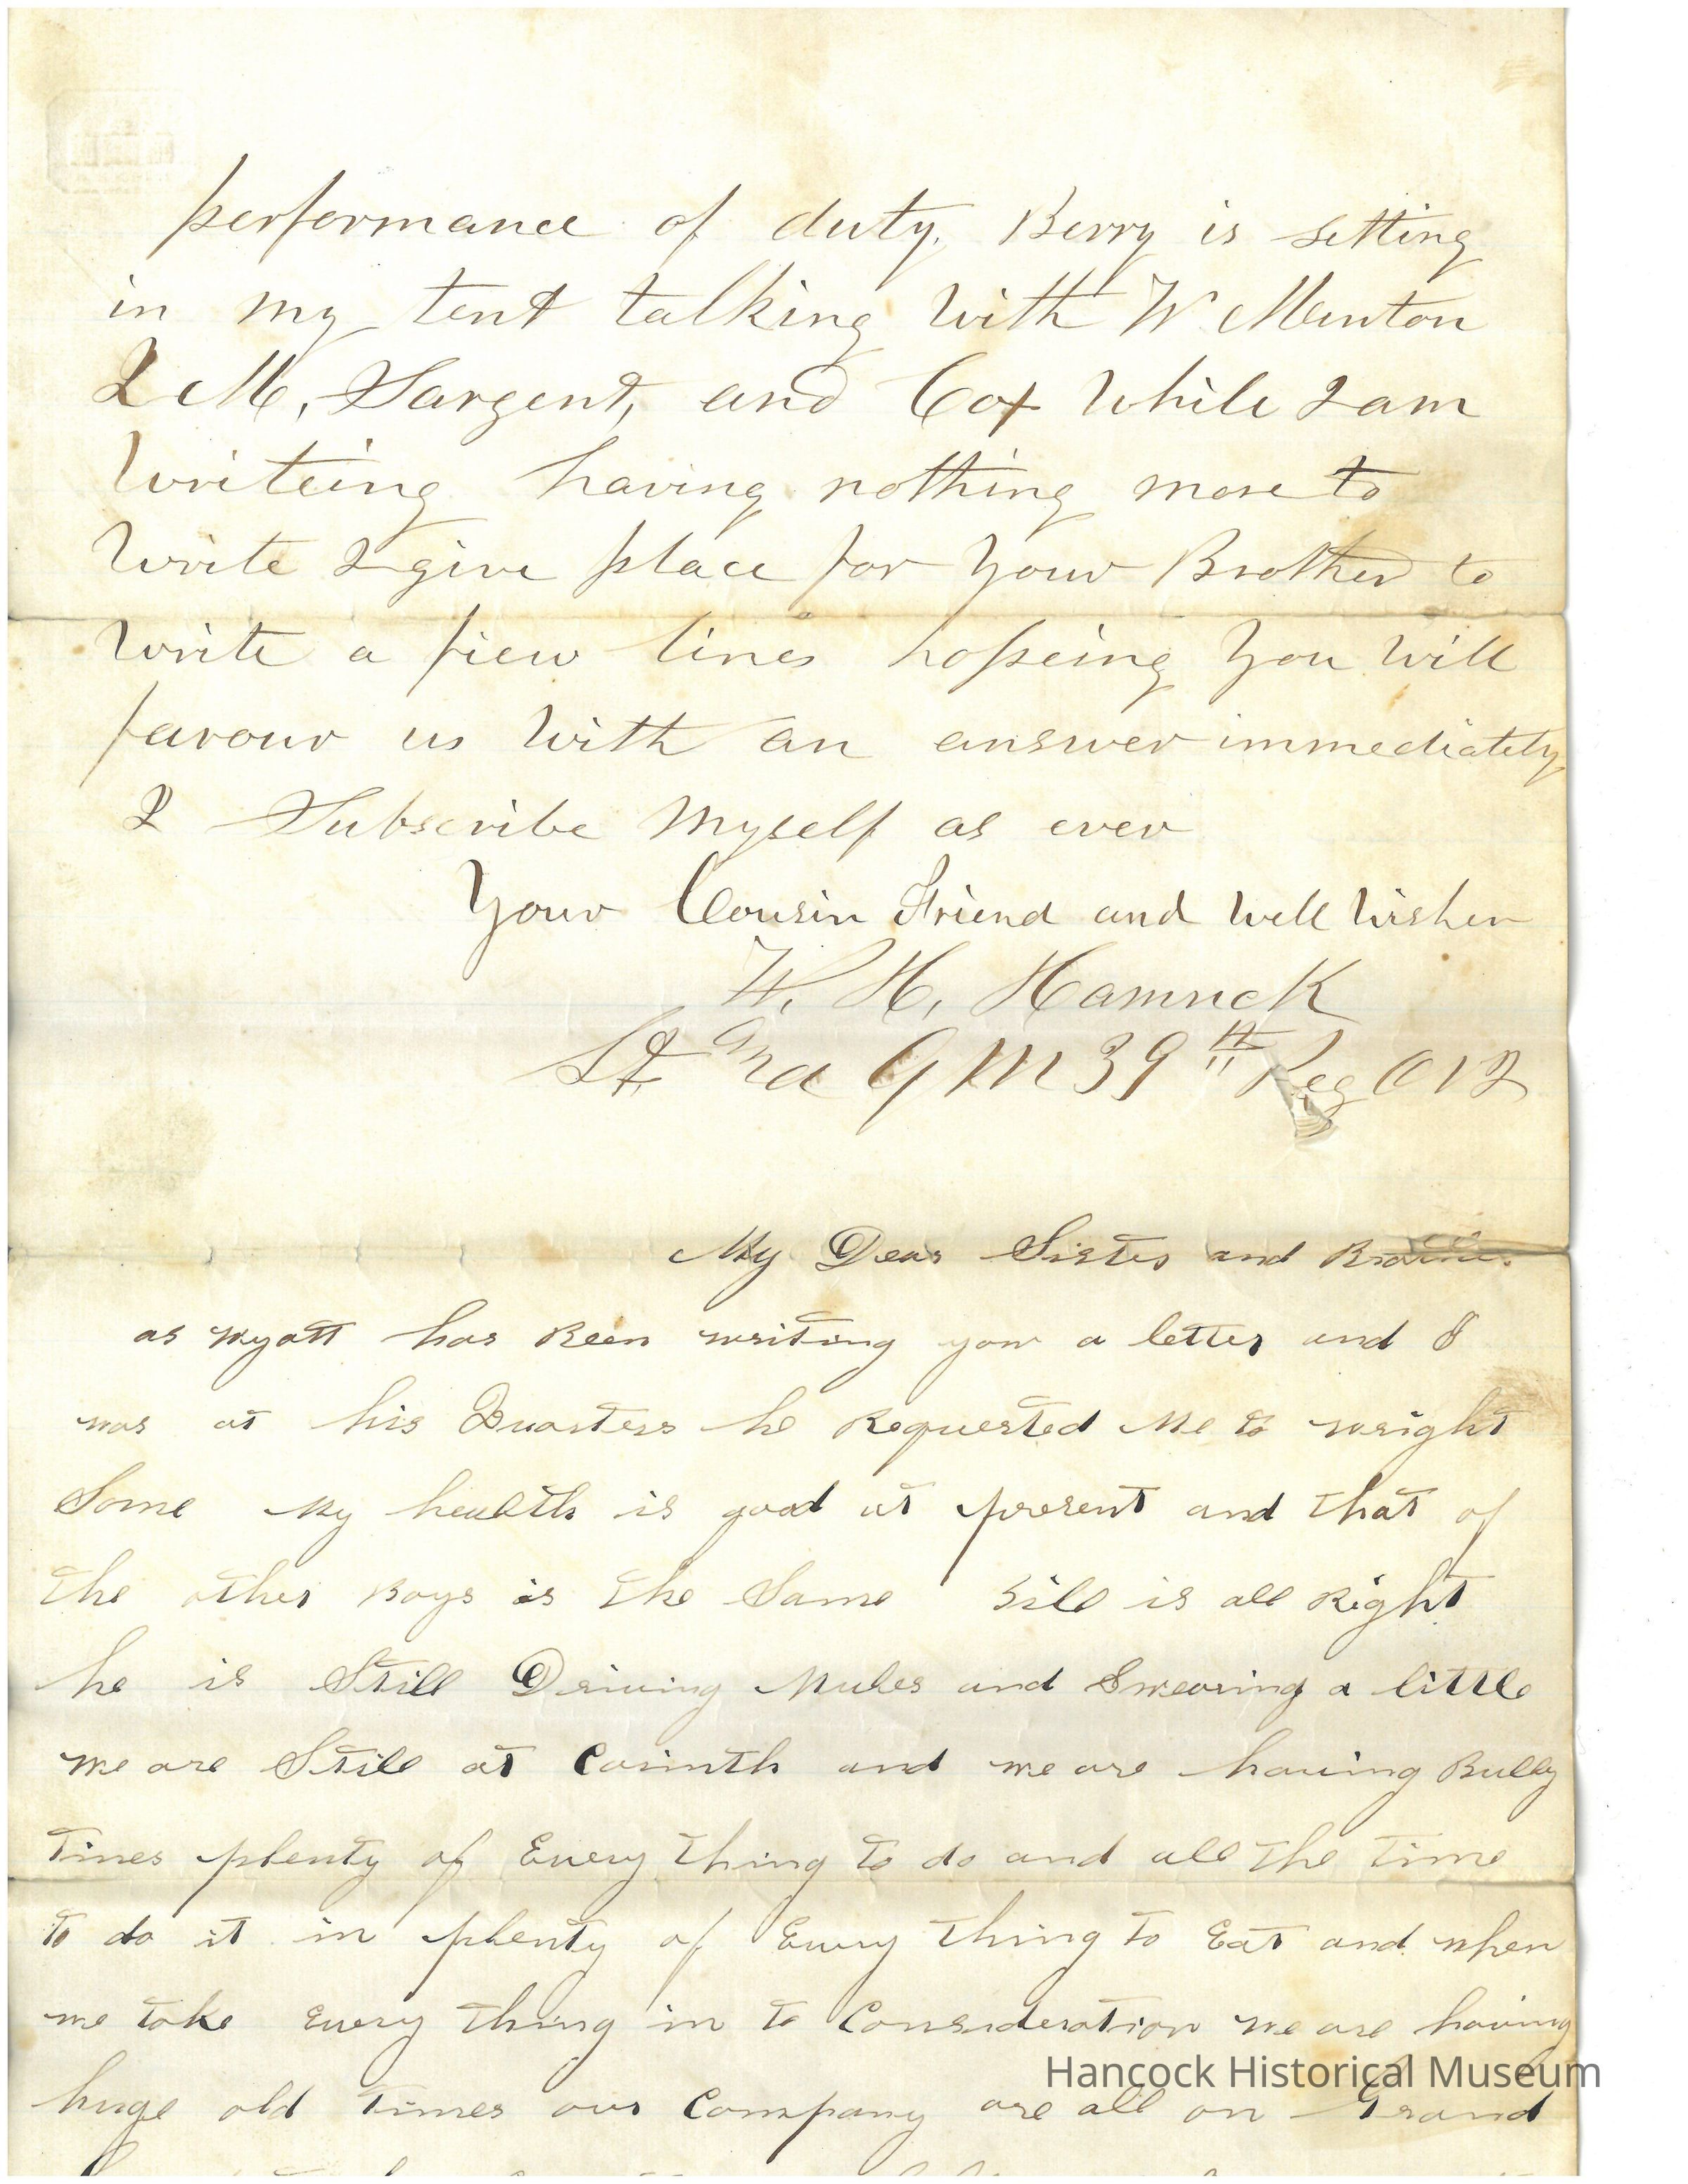 performance of duty. Berry is setting
in my tent talking with W Menton
I M, Sargent, and Cox while I am
writeing having nothing more to
write I give place for your Brother to
write a fiew lines hopeing you will
favour us with an answer immediately
I Subscribe myself as ever
Your Cousin Friend and well wisher
W. H. Hamrick
Lt and Q M 39th Reg OVI
My Dear Sister and
as Wyatt has Been writing you a letter and I
was at his Quarters he Requested Me to wright
Some My health is good at present and that of
the other Boys is the Same Sill is all Right
he is Still Driving Mules and Swearing a little
we are Still at Corinth and we are having Bully
times plenty of Every thing to do and all the time
to do it in plenty of Every thing to Eat and when
we take Every thing in to Consideration we are having
huge old times our Company are all on Grand
Hancock Historical Museum